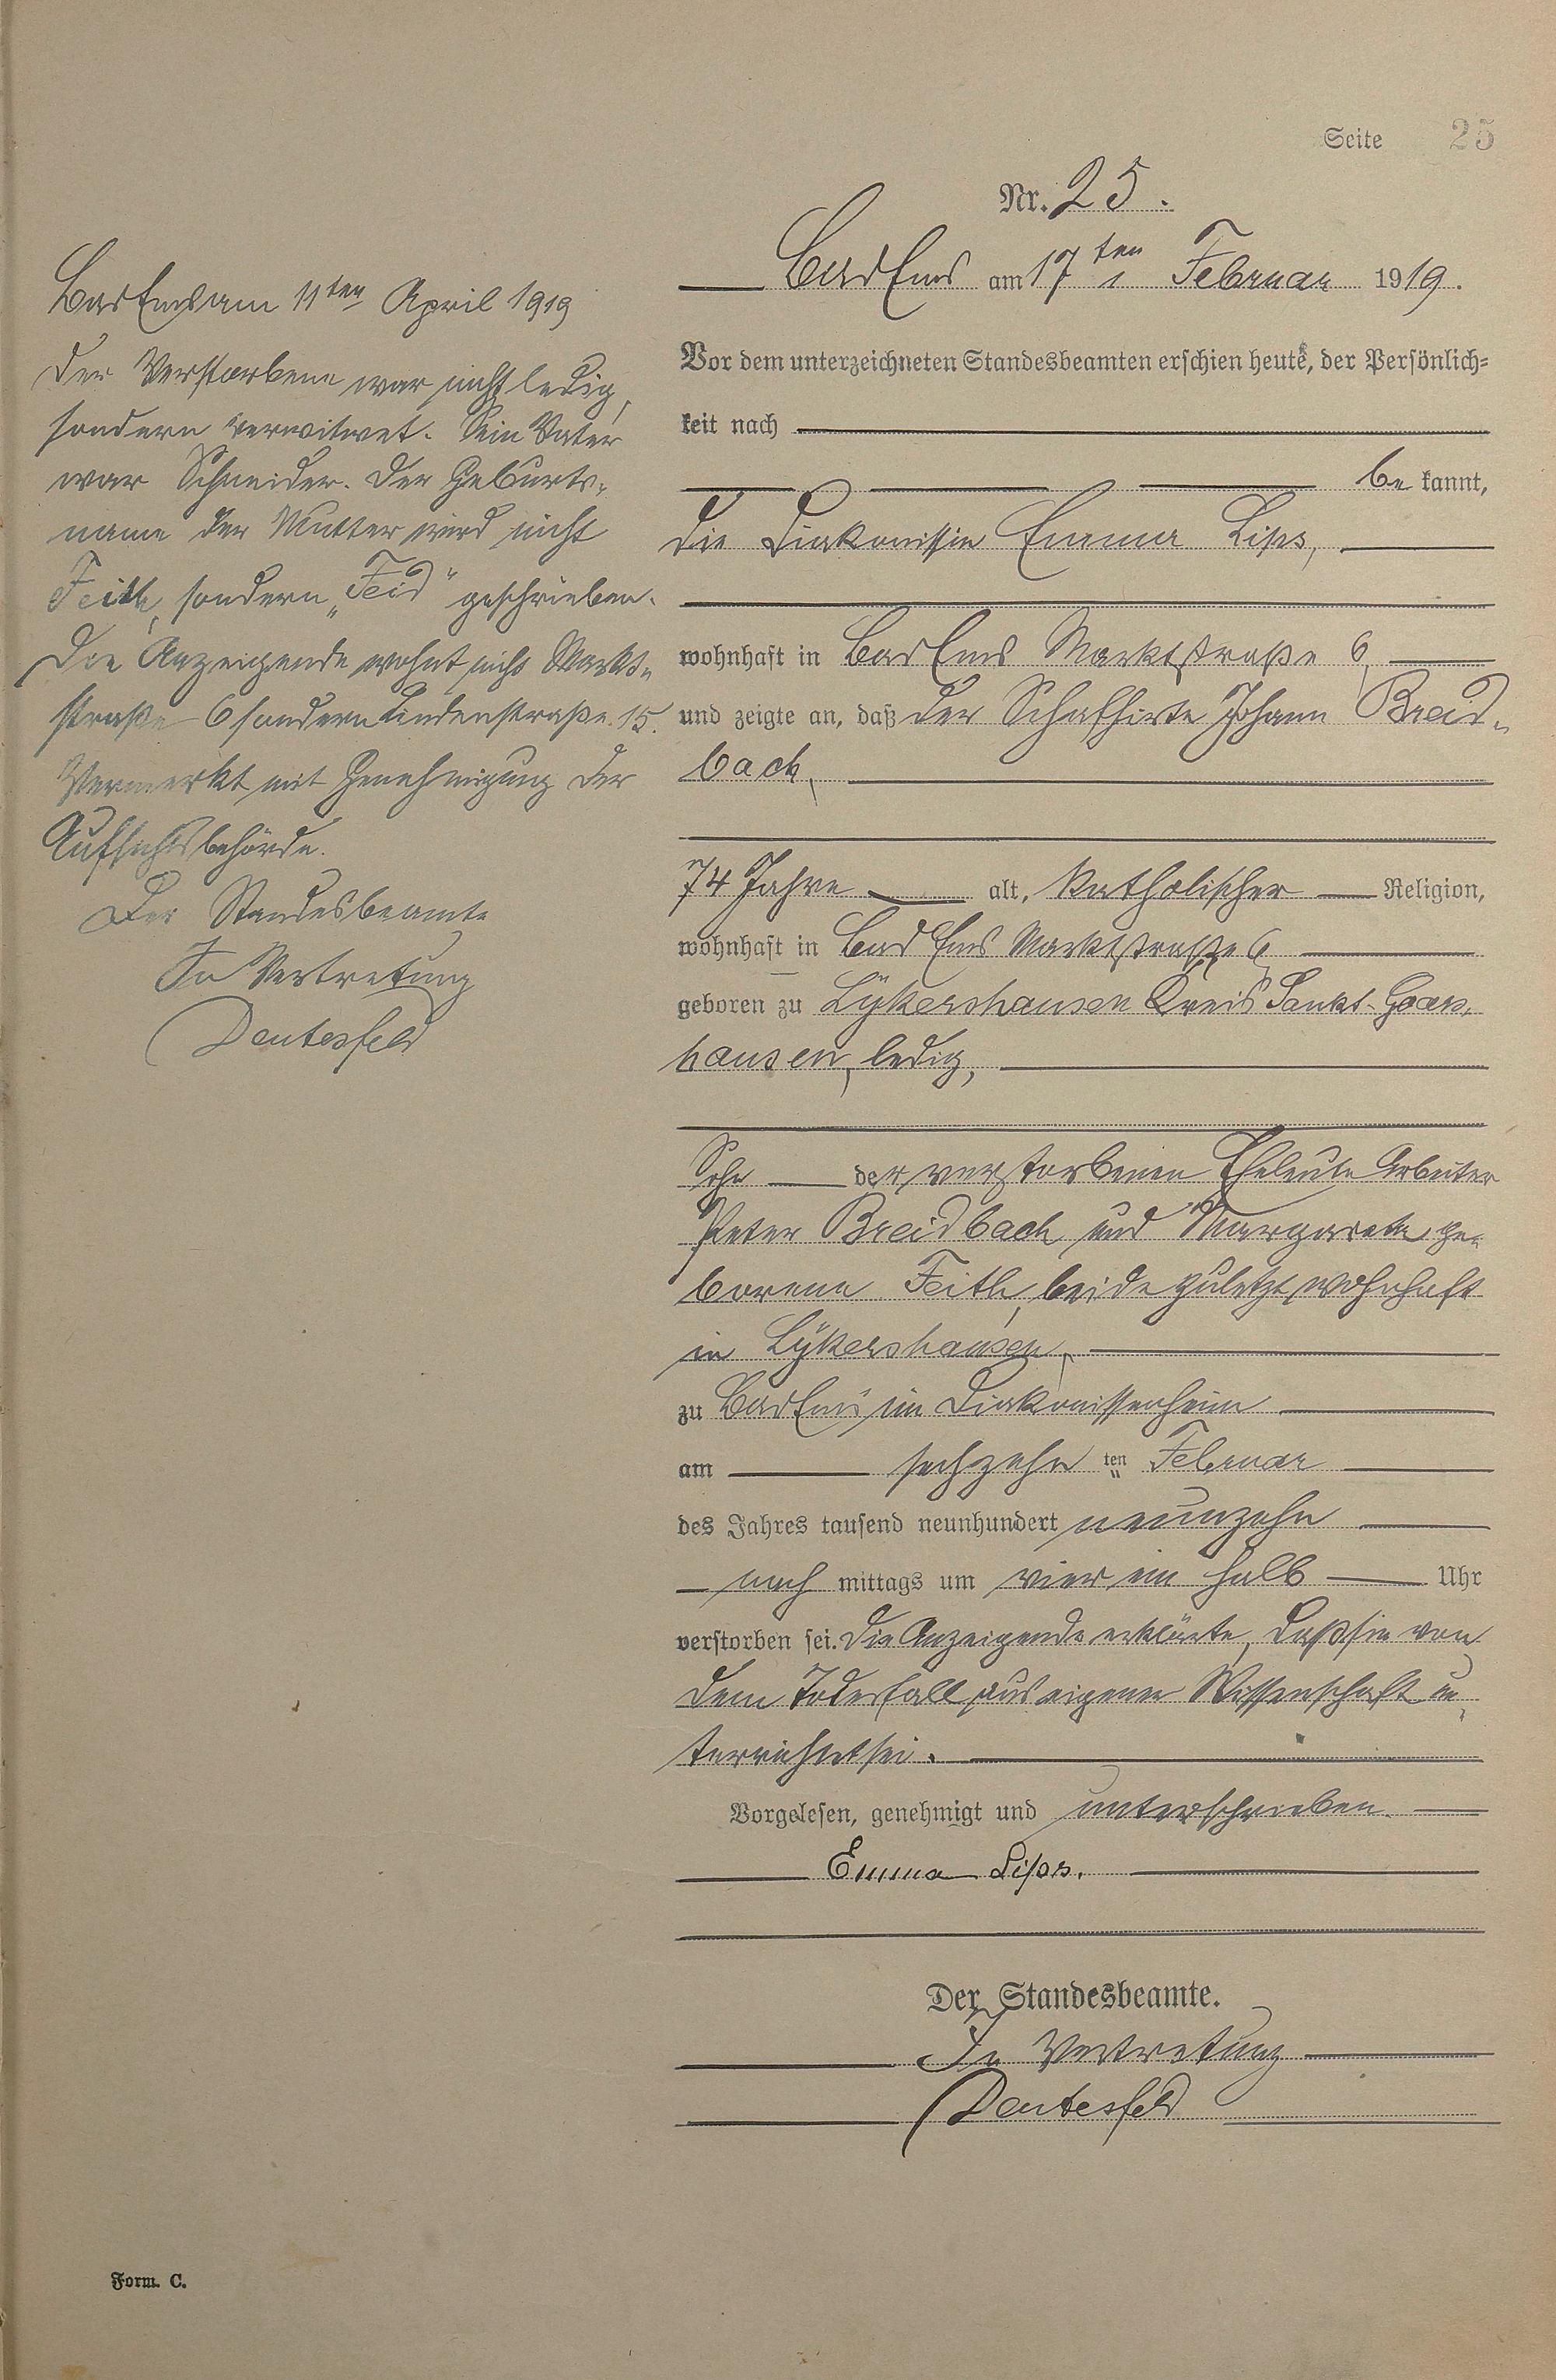 Seite 25
Nr. 25.
Bad Ems am 17ten Februar 1919.
Vor dem unterzeichneten Standesbeamten erschien heute, der Persönlich-
keit nach
be kannt,
die Diakonissin Emma Lips,
wohnhaft in Bad Ems Marktstraße 6,
und zeigte an, daß der Schafhirte Johann Breid-
bach,
74 Jahre alt, katholischer Religion,
wohnhaft in Bad Ems Marktstraße 6
geboren zu Lykershausen Kreis Sankt Goars-
hausen, ledig,
Sohn der verstorbenen Eheleute Arbeiter
Peter Breidbach und Margareta ge-
borene Feith, beide zuletzt wohnhaft
in Lykershausen,
zu Bad Ems im Diakonissenheim
am sechzehn ten Februar
des Jahres tausend neunhundert neunzehn
nach mittags um vier ein halb Uhr
verstorben sei. Die Anzeigende erklärte, daß sie von
dem Todesfall aus eigener Wissenschaft un-
terrichtet sei.
Vorgelesen, genehmigt und unterschrieben
Emma Lips.
Der Standesbeamte.
In Vertretung
Deutesfeld
Bad Ems am 11ten April 1919
Der Verstorbene war nicht ledig,
sondern verwitwet. Sein Vater
war Schneider. Der Geburts-
name der Mutter wird nicht
Feith, sondern „Feid" geschrieben.
Die Anzeigende wohnt nicht Markt-
straße 6 sondern Lindenstraße 15.
Vermerkt mit Genehmigung der
Aufsichtsbehörde.
Der Standesbeamte
In Vertretung
Deutesfeld
Form. C.